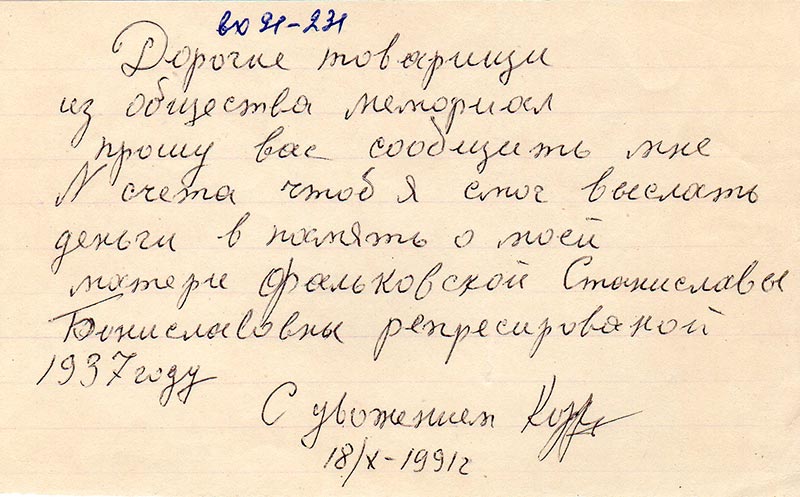 вх 91-231
Дорогие товарищи
из общества мемориал
прошу вас сообщить мне
N счета чтоб я смог выслать
деньги в память о моей
матери Фальковской Станиславы
Брониславовны репресированой
1937 году
С уважением
18/X-1991г